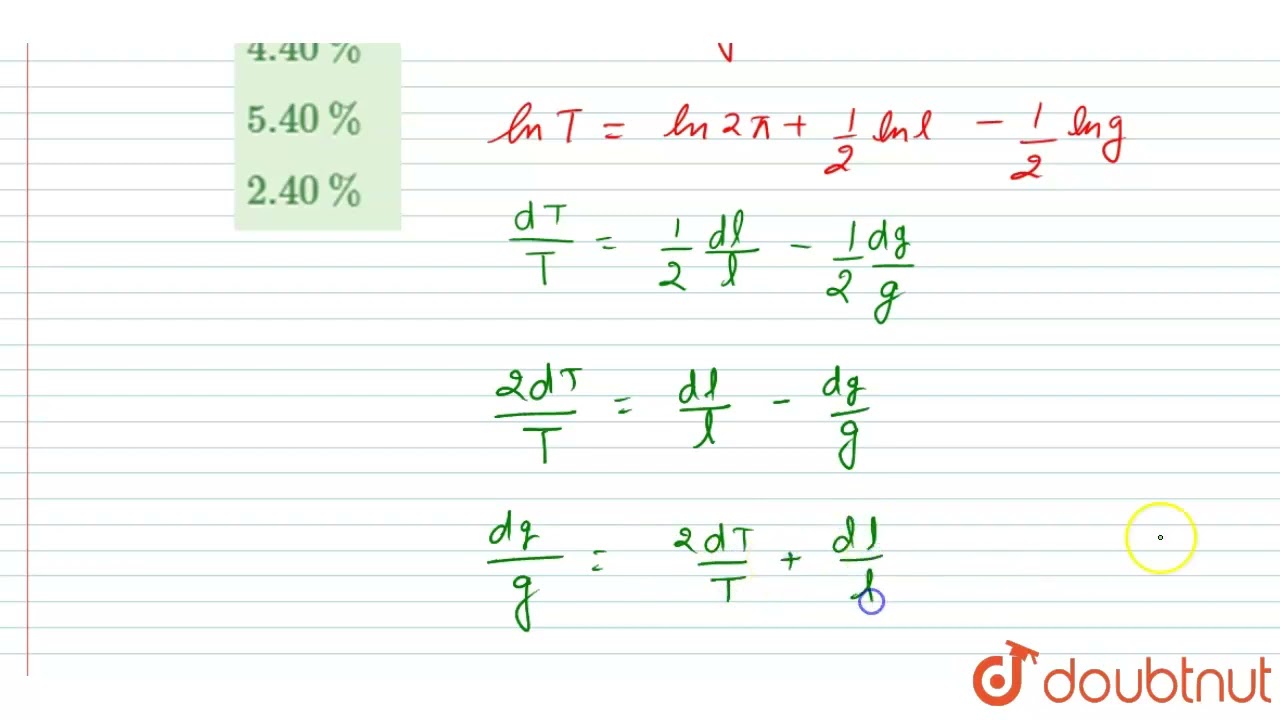 4.40 %
5.40 %
2.40 %
ln T = ln 2π + 1/2 ln l - 1/2 ln g
dT/T = 1/2 dl/l - 1/2 dg/g
2dT/T = dl/l - dg/g
dg/g = 2dT/T + dl/l
doubtnut